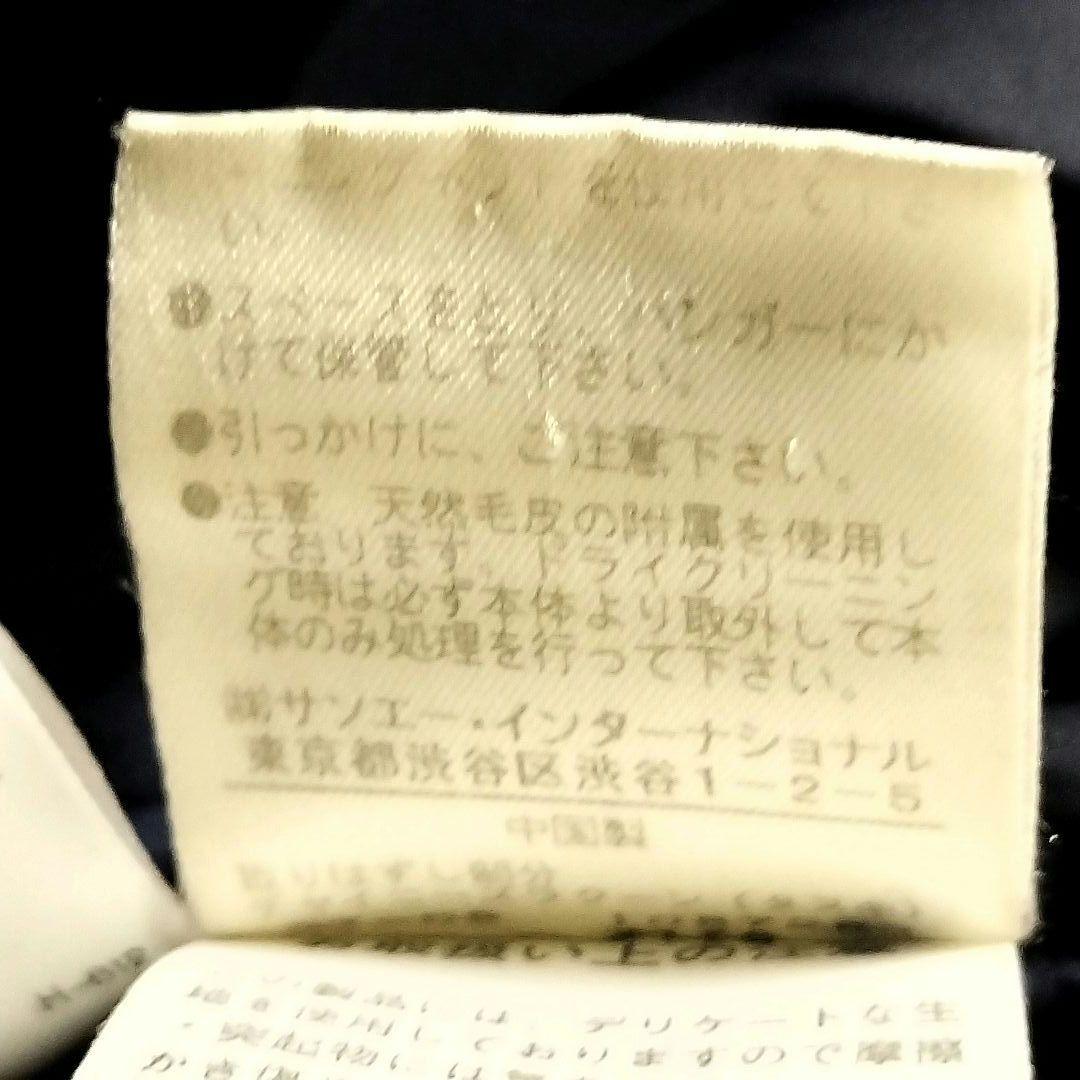 を使用して下さ
い。
●スペースをとり、ハンガーにか
けて保管して下さい。
●引っかけに、ご注意下さい。
●注意 天然毛皮の附属を使用し
ております。ドライクリーニン
グ時は必ず本体より取外して本
体のみ処理を行って下さい。
㈱サンエー・インターナショナル
東京都渋谷区渋谷1-2-5
中国製
取りはずし部分
扱い上のご注意
製品には、デリケートな生
地を使用しておりますので摩擦
・突起物には